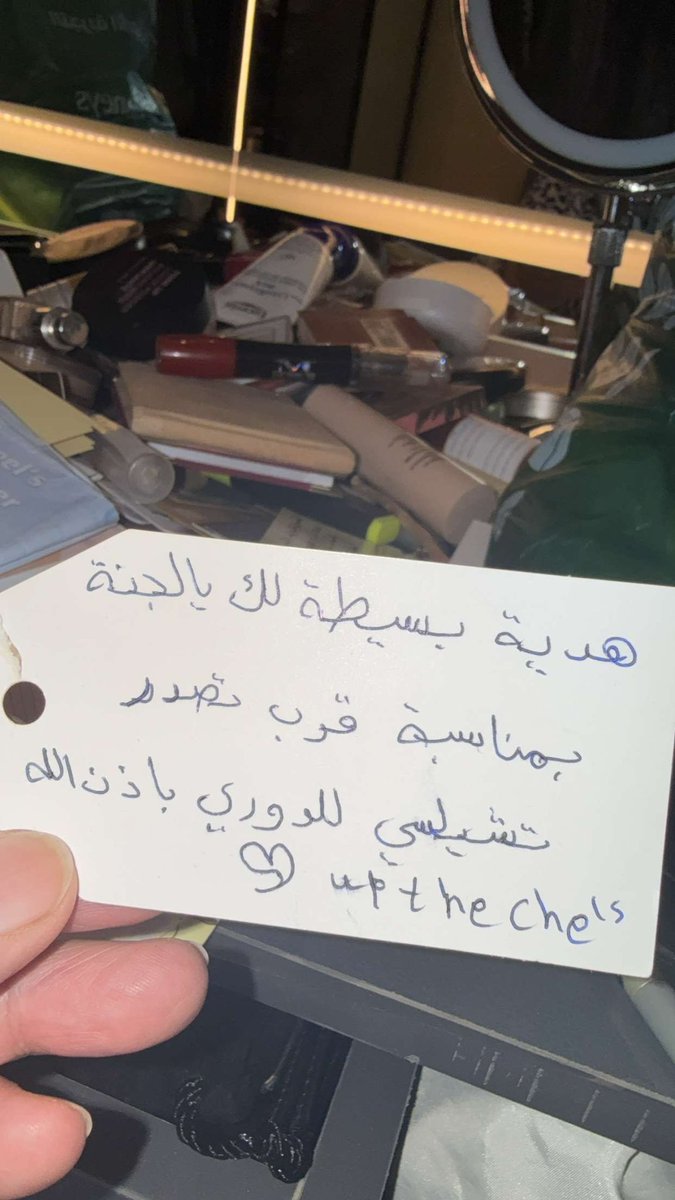 هدية بسيطة لك يالجنة
بمناسبة قرب تصدر
تشيلسي للدوري باذن الله
up the che's